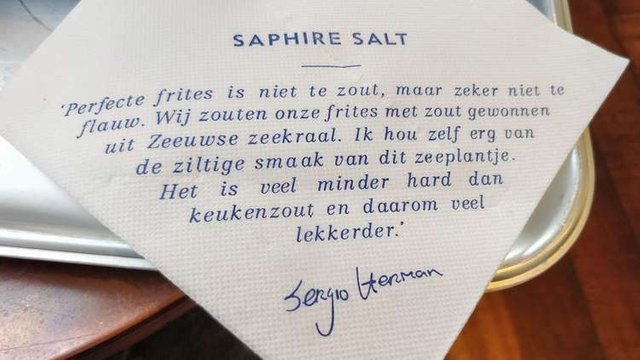 SAPHIRE SALT
'Perfecte frites is niet te zout, maar zeker niet te
flauw. Wij zouten onze frites met zout gewonnen
uit Zeeuwse zeekraal. Ik hou zelf erg van
de ziltige smaak van dit zeeplantje.
Het is veel minder hard dan
keukenzout en daarom veel
lekkerder.'
Sergio Herman